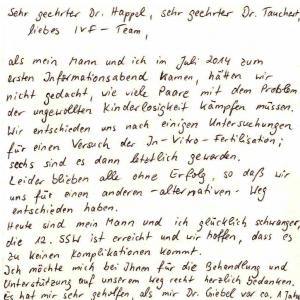 Sehr geehrter Dr. Happel, sehr geehrter Dr. Tauchert,
liebes IVF-Team,
als mein Mann und ich im Juli 2014 zum
ersten Informationsabend kamen, hätten wir
nicht gedacht, wie viele Paare mit dem Problem
der ungewollten Kinderlosigkeit kämpfen müssen.
Wir entschieden uns nach einigen Untersuchungen
für einen Versuch der In-Vitro-Fertilisation;
sechs sind es dann letztlich geworden.
Leider blieben alle ohne Erfolg, so daß wir
uns für einen anderen -alternativen- Weg
entschieden haben.
Heute sind mein Mann und ich glücklich schwanger,
die 12. SSW ist erreicht und wir hoffen, dass es
zu keinen Komplikationen kommt.
Ich möchte mich bei Ihnen für die Behandlung und
Unterstützung auf unserem Weg recht herzlich bedanken.
Es hat mir sehr geholfen, als mir Dr. Giebel vor ca. 1 Jah